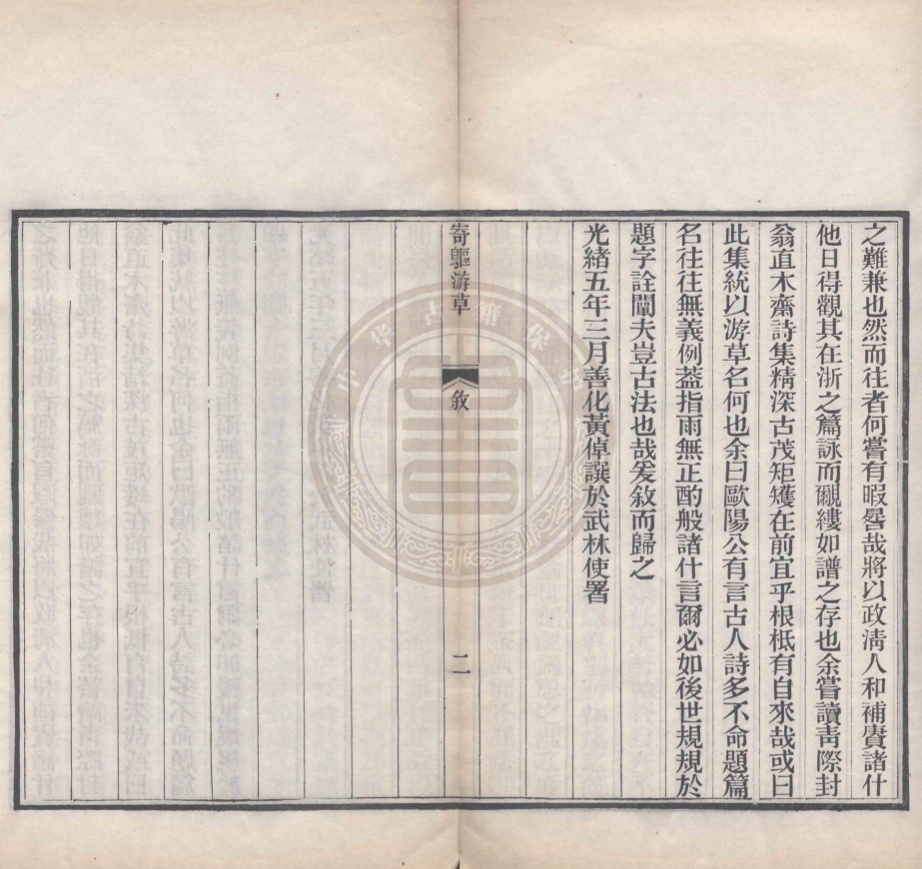 之難兼也然而往者何嘗有暇晷哉將以政淸人和補賡諸什
他日得觀其在浙之篇詠而覼縷如譜之存也余嘗讀靑際封
翁直木齋詩集精深古茂矩矱在前宜乎根柢有自來哉或曰
此集統以游草名何也余曰歐陽公有言古人詩多不命題篇
名往往無義例葢指雨無正酌般諸什言爾必如後世規規於
題字詮闡夫豈古法也哉爰敘而歸之
光緒五年三月善化黃倬譔於武林使署
寄軀游草
敘
二